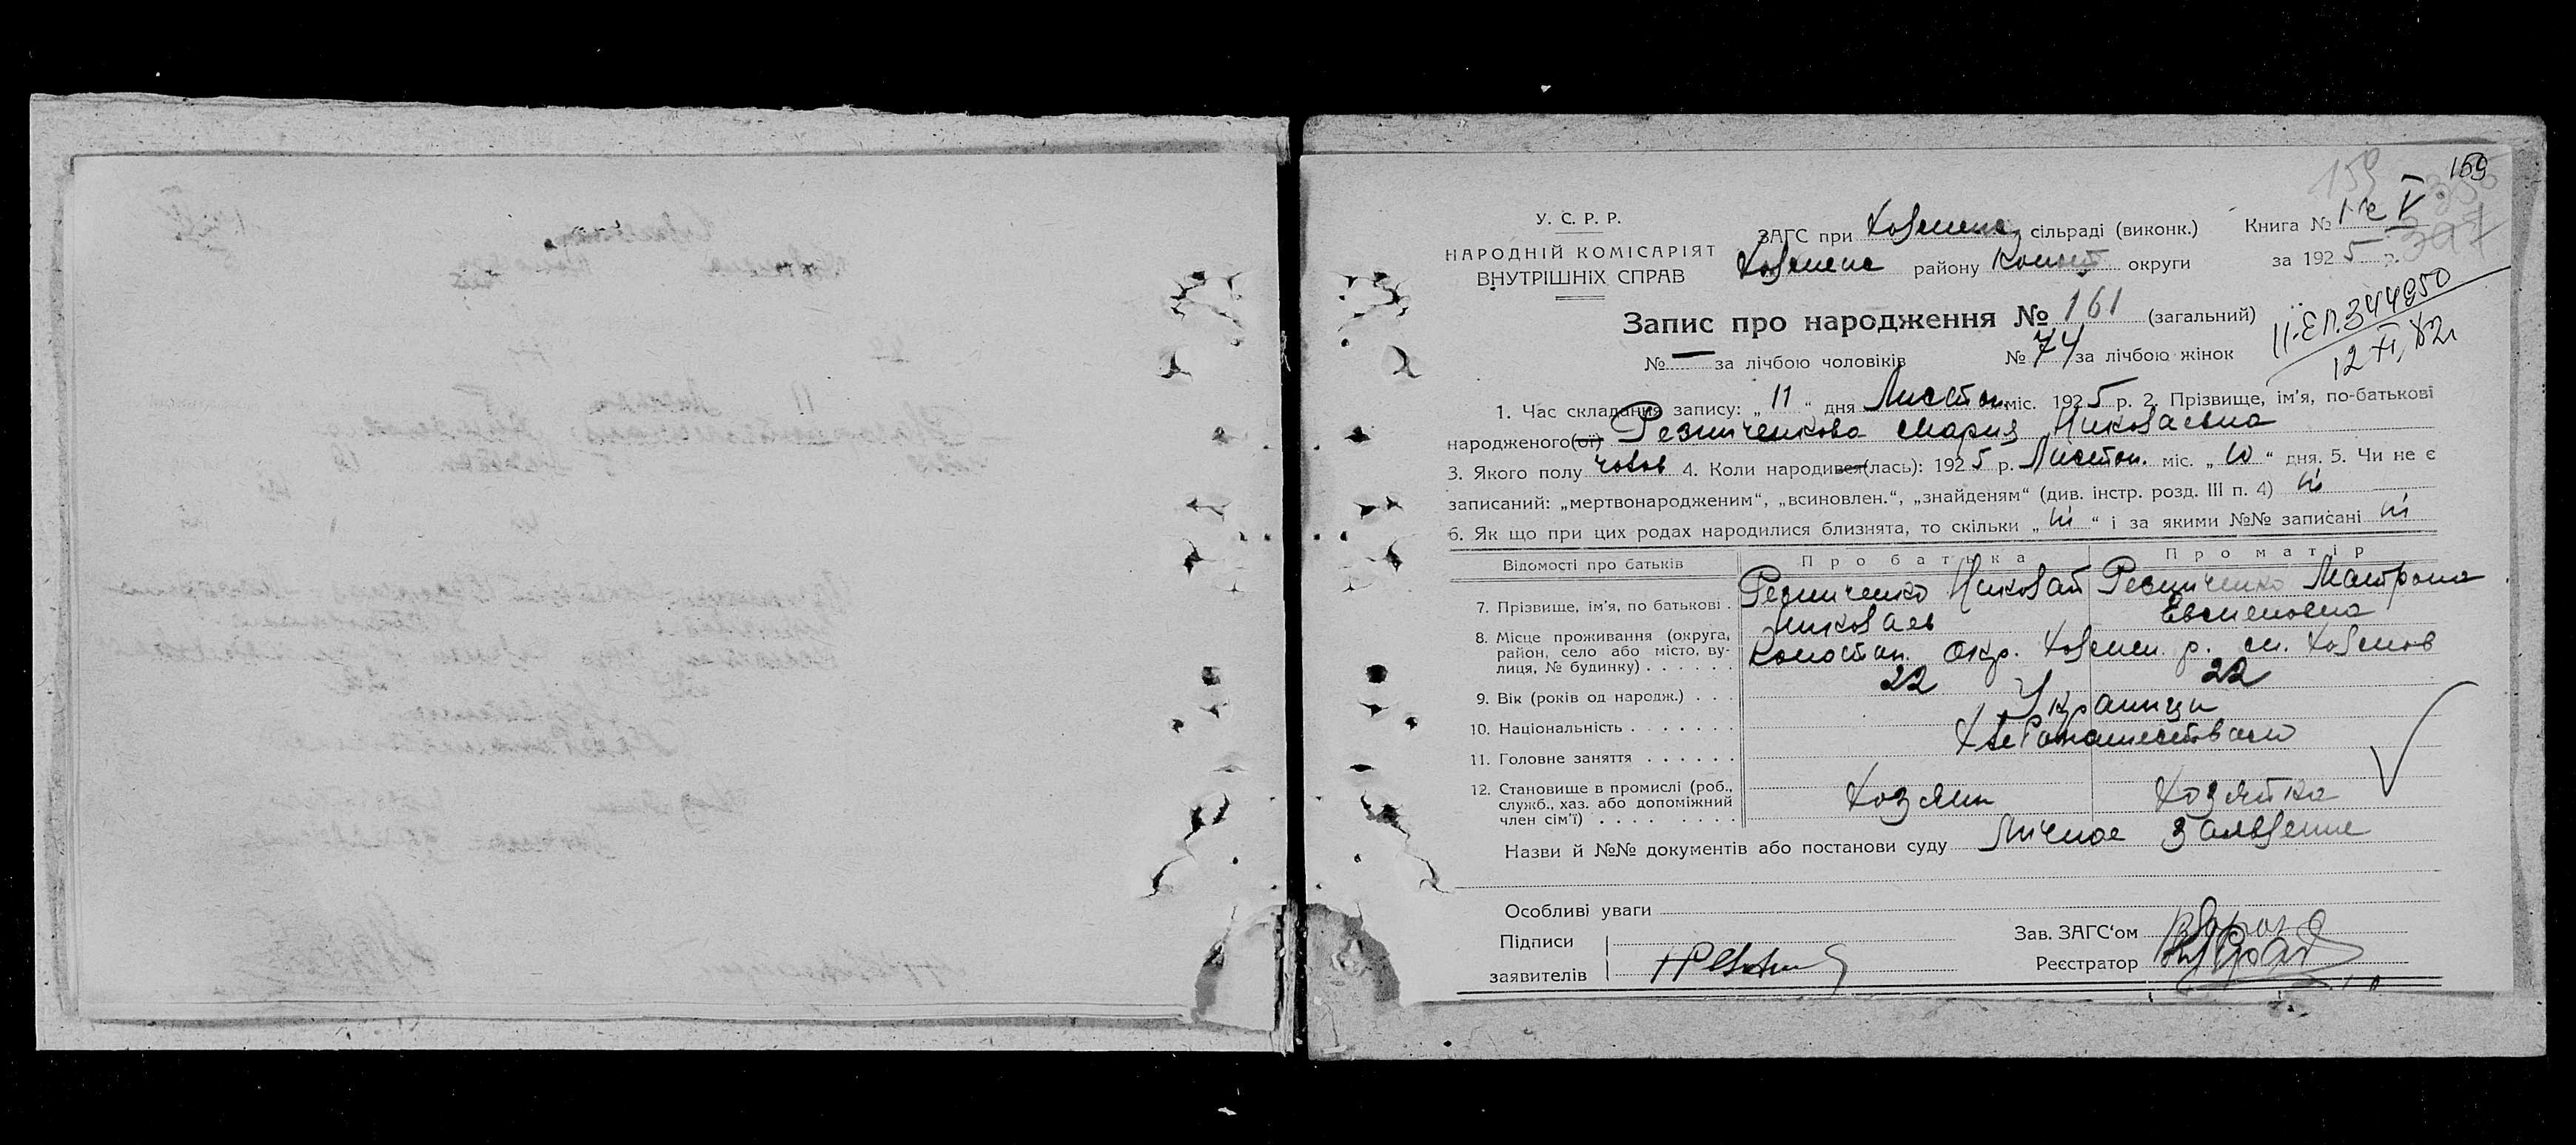 159
У. С. Р. Р.
НАРОДНІЙ КОМІСАРІЯТ
ВНУТРІШНІХ СПРАВ
ЗАГС при сільраді (виконк.)
району Коност округи
Книга № V
за 1925 р.
Запис про народження № 161 (загальний)
№ — за лічбою чоловіків № 74 за лічбою жінок
344950
12 XI
1. Час складання запису: „ 11 “ дня Листоп. міс. 1925 р. 2. Прізвище, ім'я, по-батькові
народженого(ої) Резниченкова Мария Николаевна
3. Якого полу 4. Коли народився(лась): 1925 р. Листоп. міс. „ 10 “ дня. 5. Чи не є
записаний: „мертвонародженим“, „всиновлен.“, „знайденям“ (див. інстр. розд. III п. 4) ні
6. Як що при цих родах народилися близнята, то скільки „ ні “ і за якими №№ записані ні
Відомості про батьків Про батька Про матір
7. Прізвище, ім'я, по батькові . Резниченко Николай Николаев Резниченко Матрона Евсиеновна
8. Місце проживання (округа, район, село або місто, вулиця, № будинку) . . . . . . Конотоп. окр. р.
9. Вік (років од народж.) . . . 22 22
10. Національність . . . . . . . Украинцы
11. Головне заняття . . . . . . Хлебопашество
12. Становище в промислі (роб., служб., хаз. або допоміжний член сім'ї) . . . . . . . . . Хозяин Хозяйка
Назви й №№ документів або постанови суду Личное заявление
Особливі уваги
Підписи
заявителів
Зав. ЗАГС'ом
Реєстратор